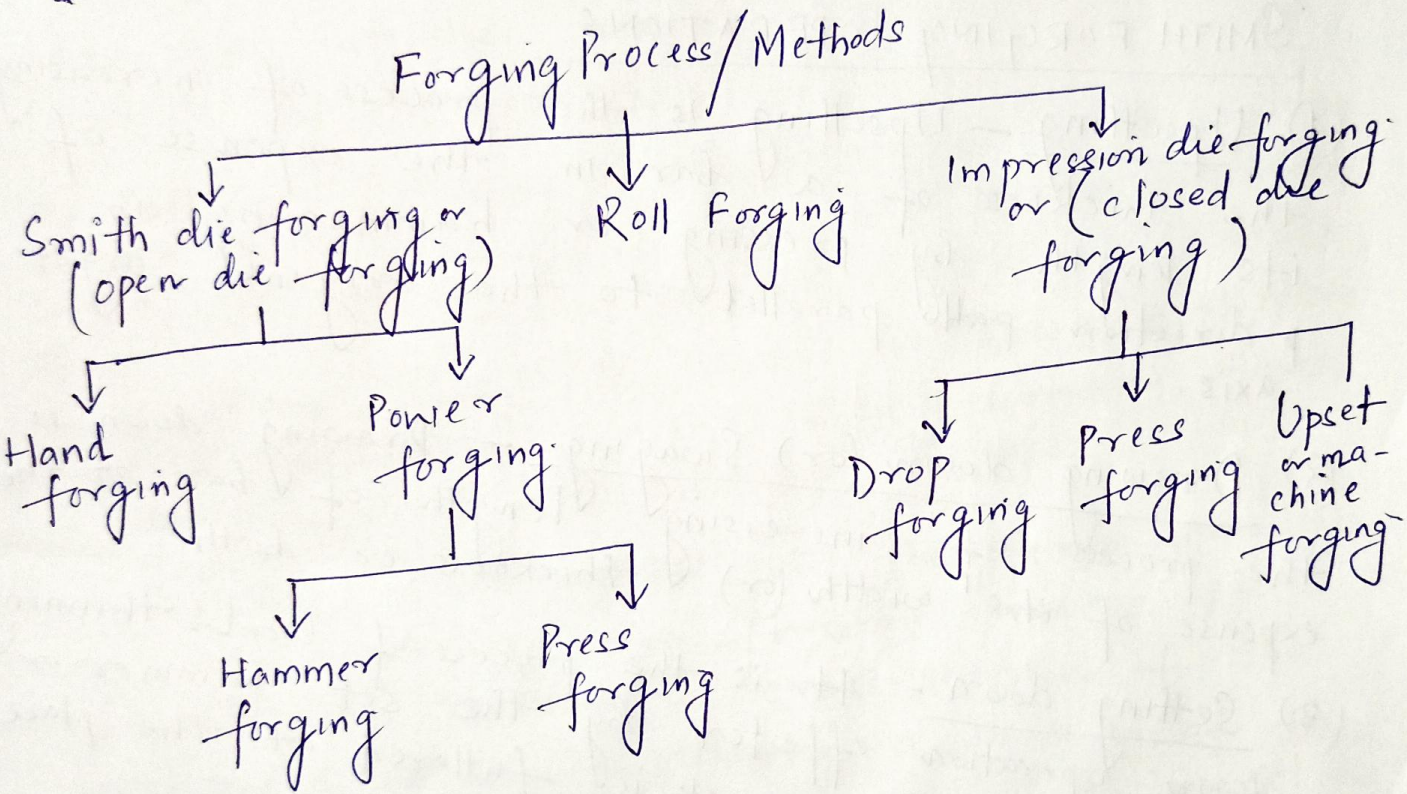 Forging Process/Methods
Smith die forging or
(open die forging)
Roll Forging
Impression die forging
or (closed die
forging)
Hand
forging
Power
forging
Drop
forging
Press
forging
Upset
or ma-
chine
forging
Hammer
forging
Press
forging